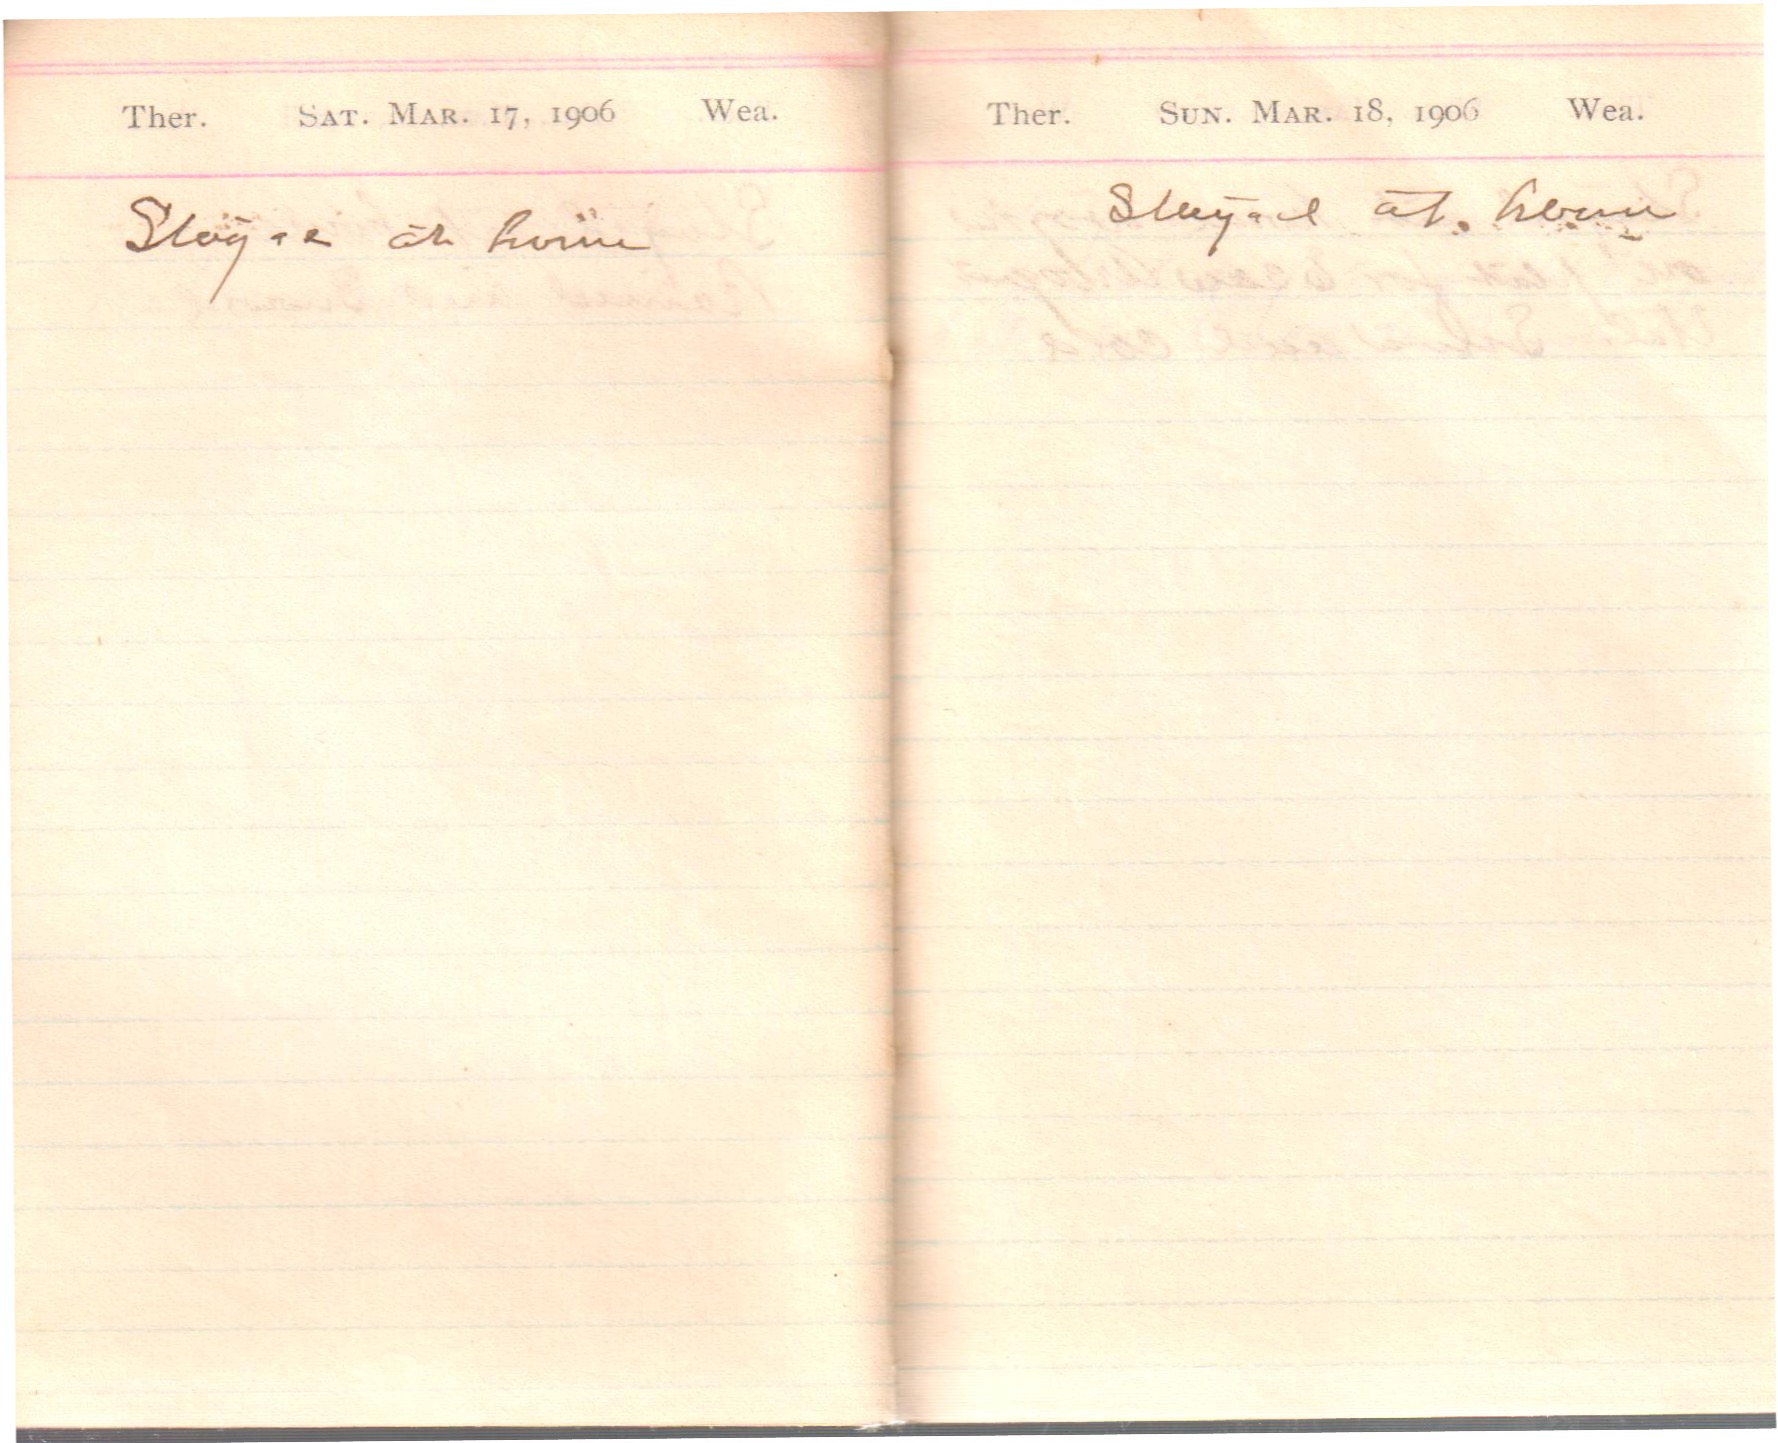 Ther. Sat. Mar. 17, 1906 Wea.
Stayed at home
Ther. Sun. Mar. 18, 1906 Wea.
Stayed at. home